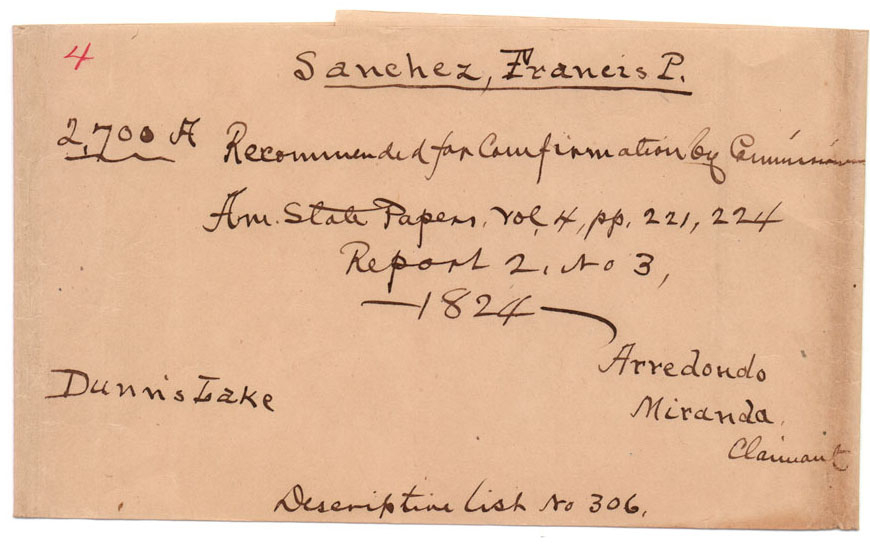 4
Sanchez, Francis P.
2,700 A Recommended for Comfirmation by Commission
Am. State Papers, Vol, 4, pp. 221, 224
Report 2, No 3,
—1824—
Arredondo
Dunn's Lake
Miranda.
Claimant
Descriptive List No 306.